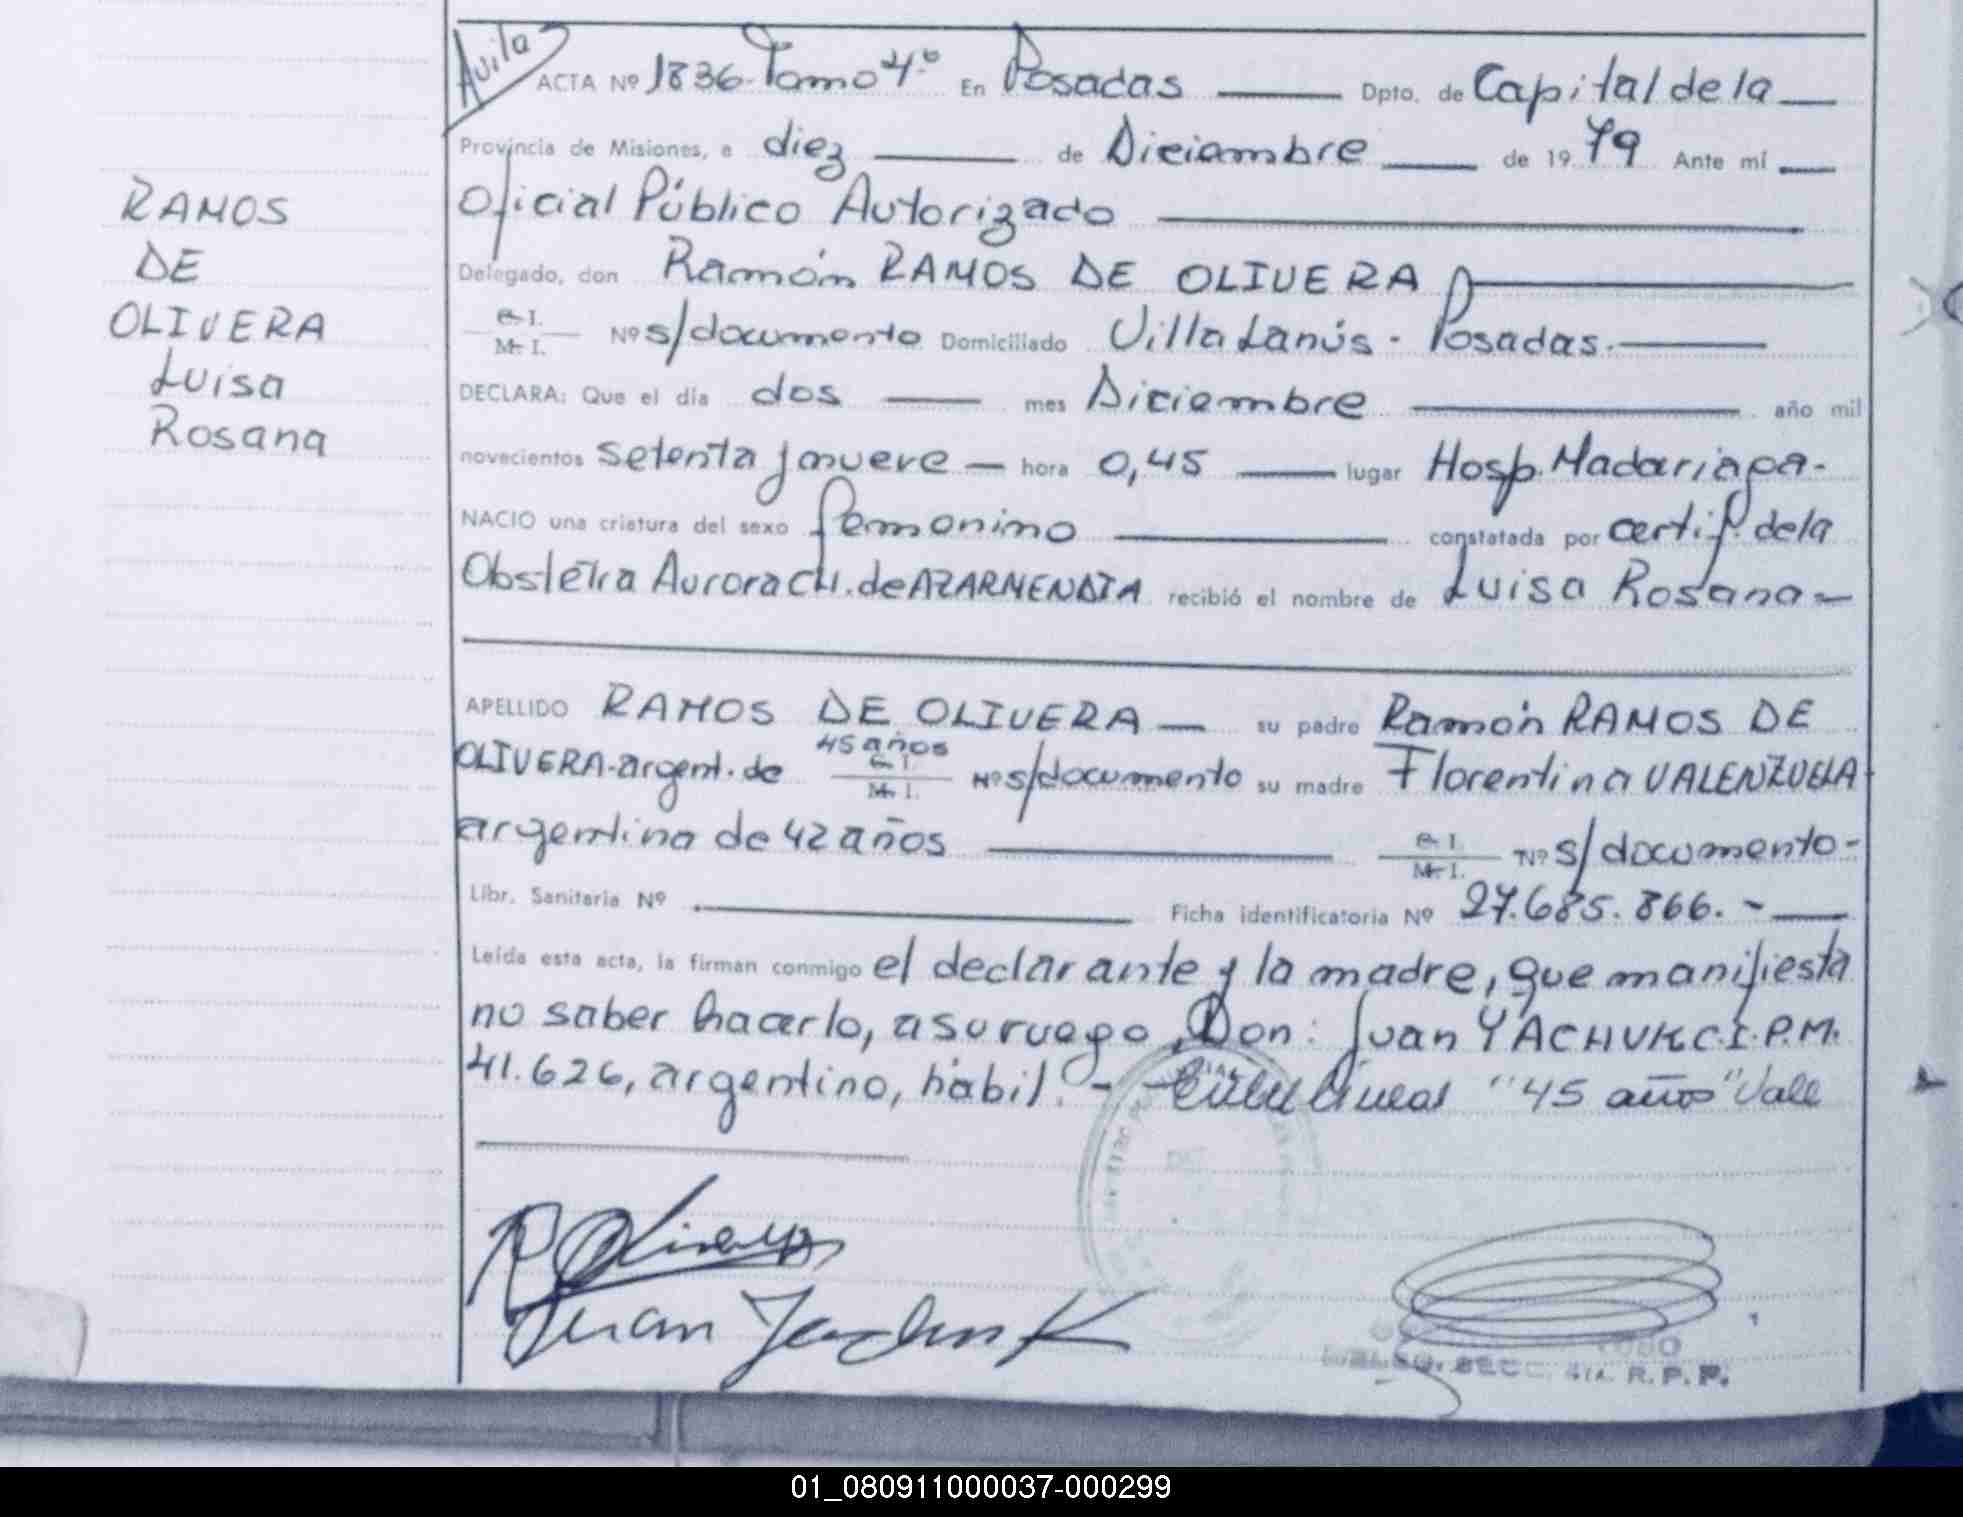 Avila
ACTA Nº 1836. Tomo 4º En Posadas Dpto. de Capital de la
Provincia de Misiones, a diez de Diciembre de 1979 Ante mí
Oficial Público Autorizado
Delegado, don Ramón RAMOS DE OLIVERA
C. I.
M. I. Nº s/documento Domiciliado Villa Lanús - Posadas.
DECLARA: Que el día dos mes Diciembre año mil
novecientos setenta y nueve hora 0,45 lugar Hosp. Madariaga.
NACIO una criatura del sexo femenino constatada por certif. de la
Obstétra Aurora CH. de AZARMENDIA recibió el nombre de Luisa Rosana
APELLIDO RAMOS DE OLIVERA su padre Ramón RAMOS DE
OLIVERA-argent. de 45 años
C. I.
M. I. Nº s/documento su madre Florentina VALENZUELA
argentina de 42 años C. I.
M. I. Nº s/documento-
Libr. Sanitaria Nº Ficha identificatoria Nº 27.685.866.-
Leída esta acta, la firman conmigo el declarante y la madre, que manifiesta
no saber hacerlo, a su ruego, Don: Juan YACHUK C.I.P.M.
41.626, argentino, hábil.- Entre lineas "45 años" Vale
R Olivera
Juan Yachuk
SECC. 4ta. R. P. P.
RAMOS
DE
OLIVERA
Luisa
Rosana
01_080911000037-000299